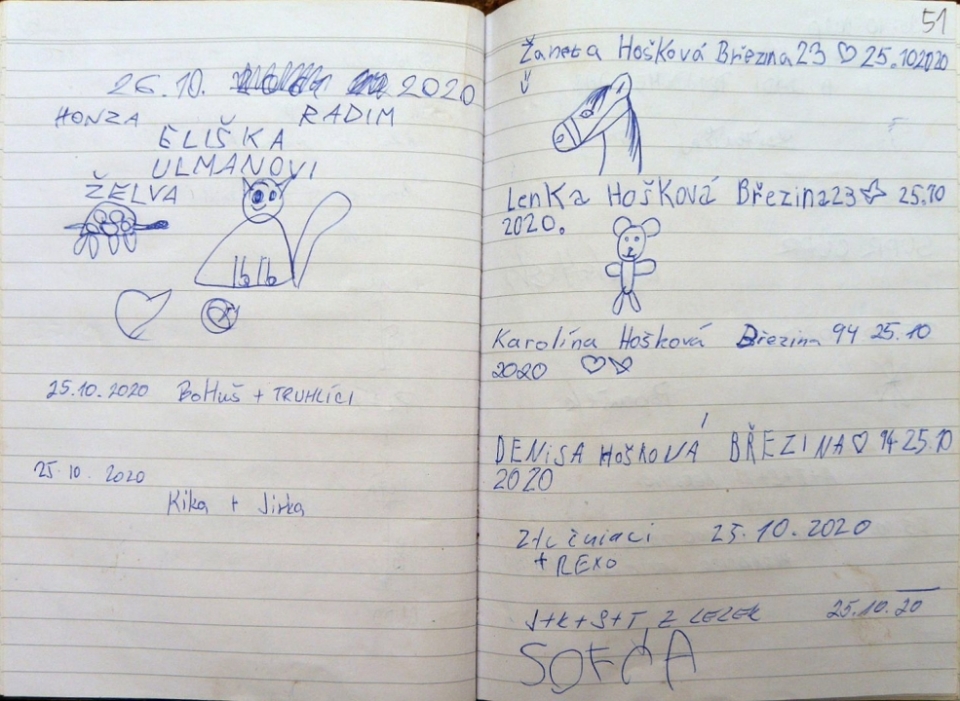 26.10. 2020
HONZA RADIM
ELIŠKA
ULMANOVI
ŽELVA
25.10.2020 BoHuš + TRUHLÍCI
25.10.2020
Kika + Jirka
51
Žaneta Hošková Březina 23 ♡ 25.102020
LenKa HoŠKová Březina 23 25.10
2020.
Karolína Hošková Březina 94 25.10
2020 ♡
DENiSA HoŠKOVÁ BŘEZINA ♡ 94 25.10
2020
25.10.2020
+ REXO
J+K+S+T Z LEZEK 25.10.20